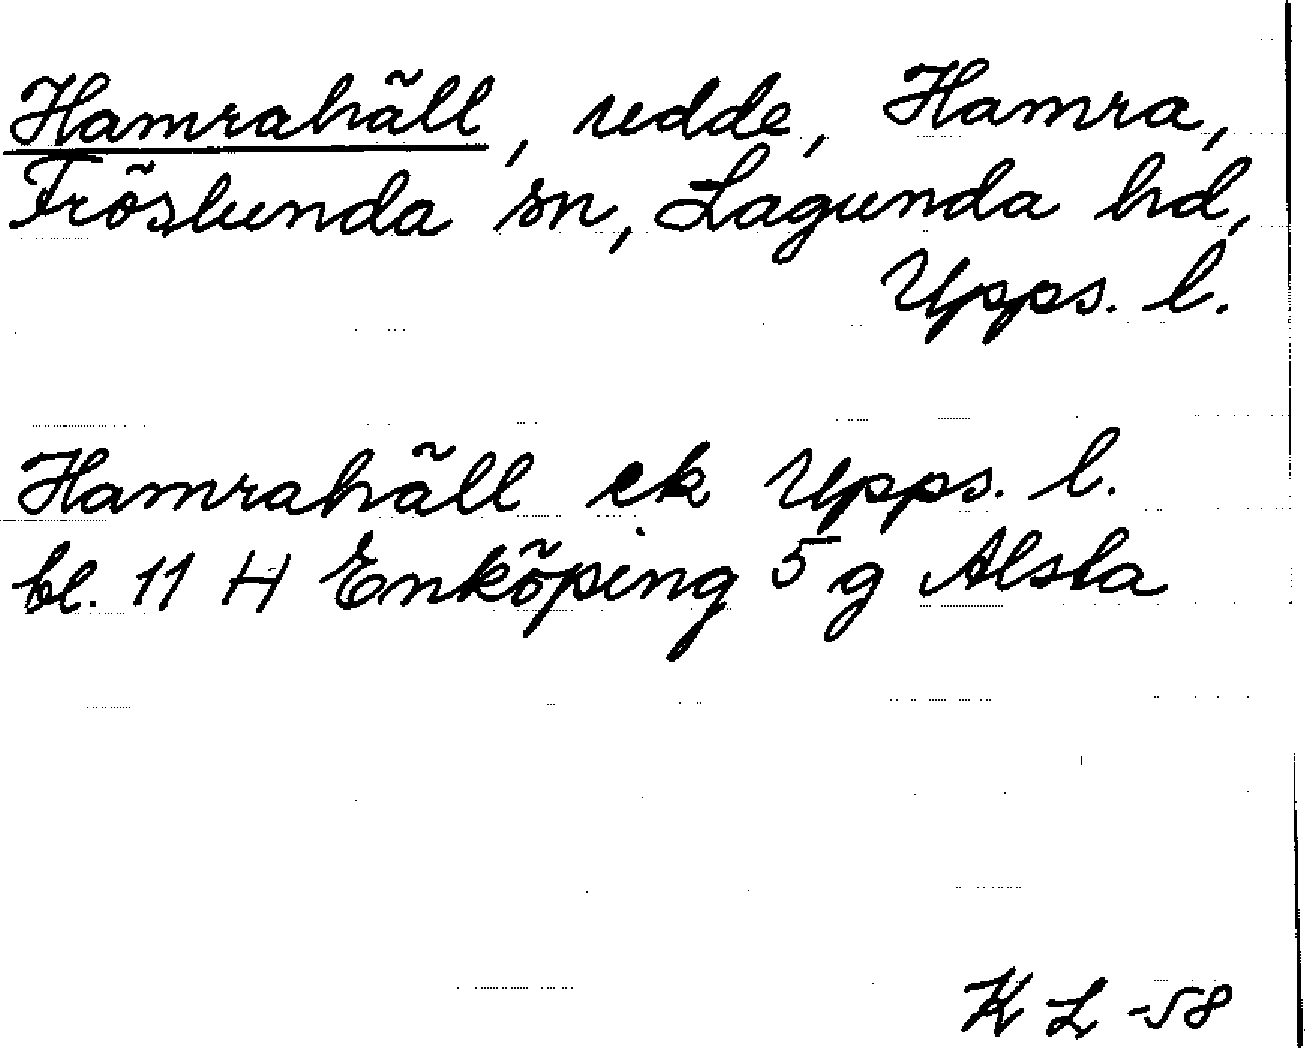 Hamrahäll, udde, Hamra,
Fröslunda sn, Lagunda hd,
Upps. l.
Hamrahäll ek Upps. l.
bl. 11 H Enköping 5 g Alsta
K L -58